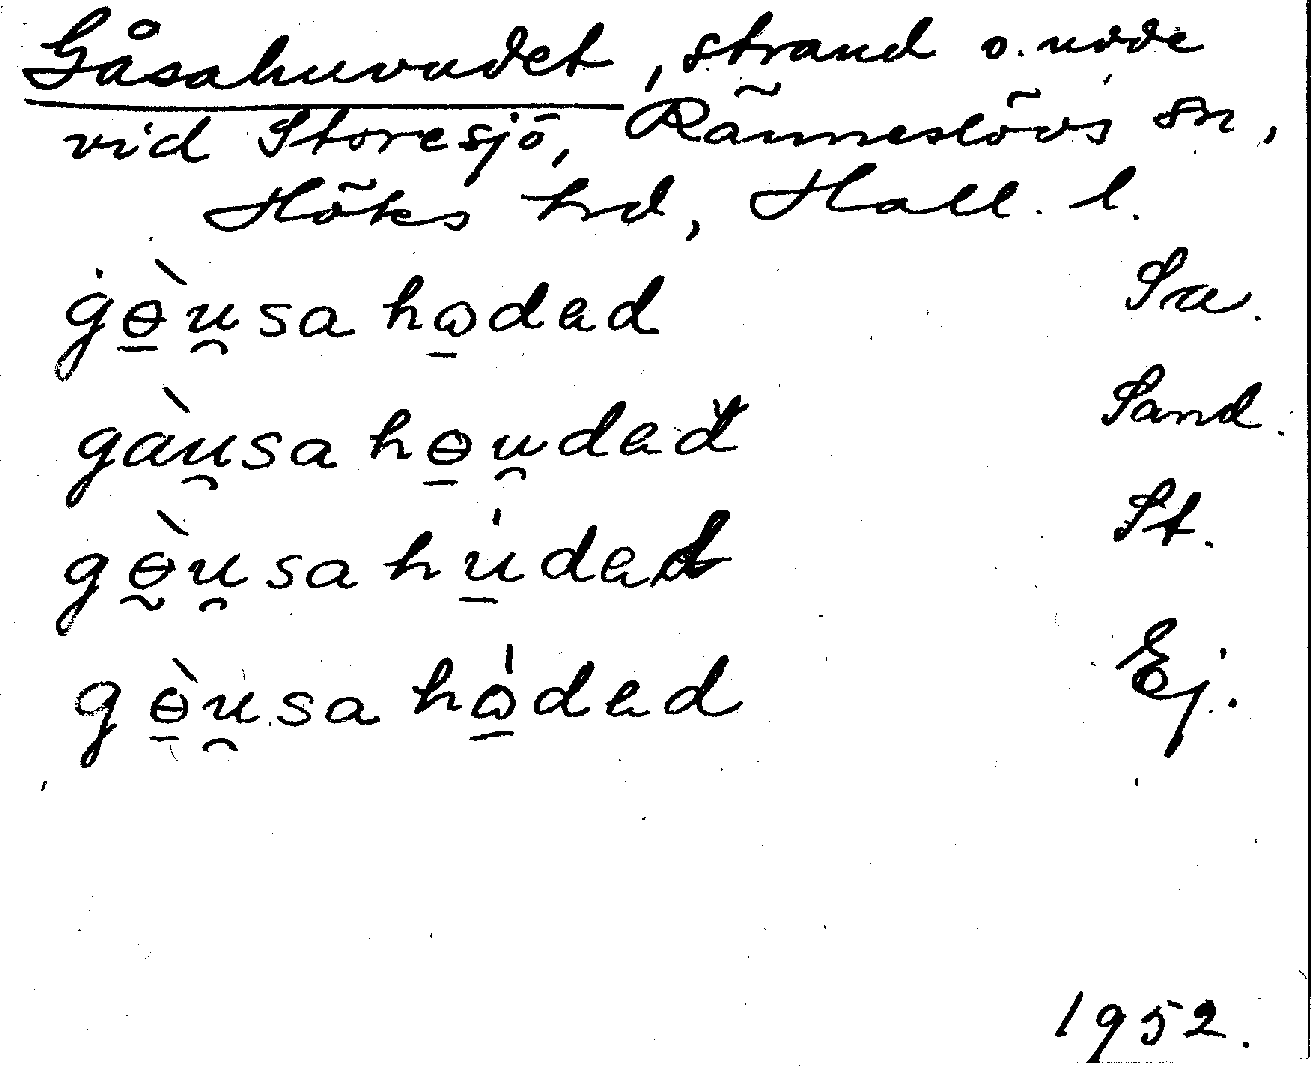 Gåsahuvudet, strand o. udde
vid Storesjö, Ränneslövs sn,
Höks hrd, Hall. l.
gɵ̀u̯sahωdad Sa.
gàu̯sahɵu̯dad Sand.
gɵ̀u̯sahu̍dad St.
gɵ̀u̯sahω̍dad Ej.
1952.